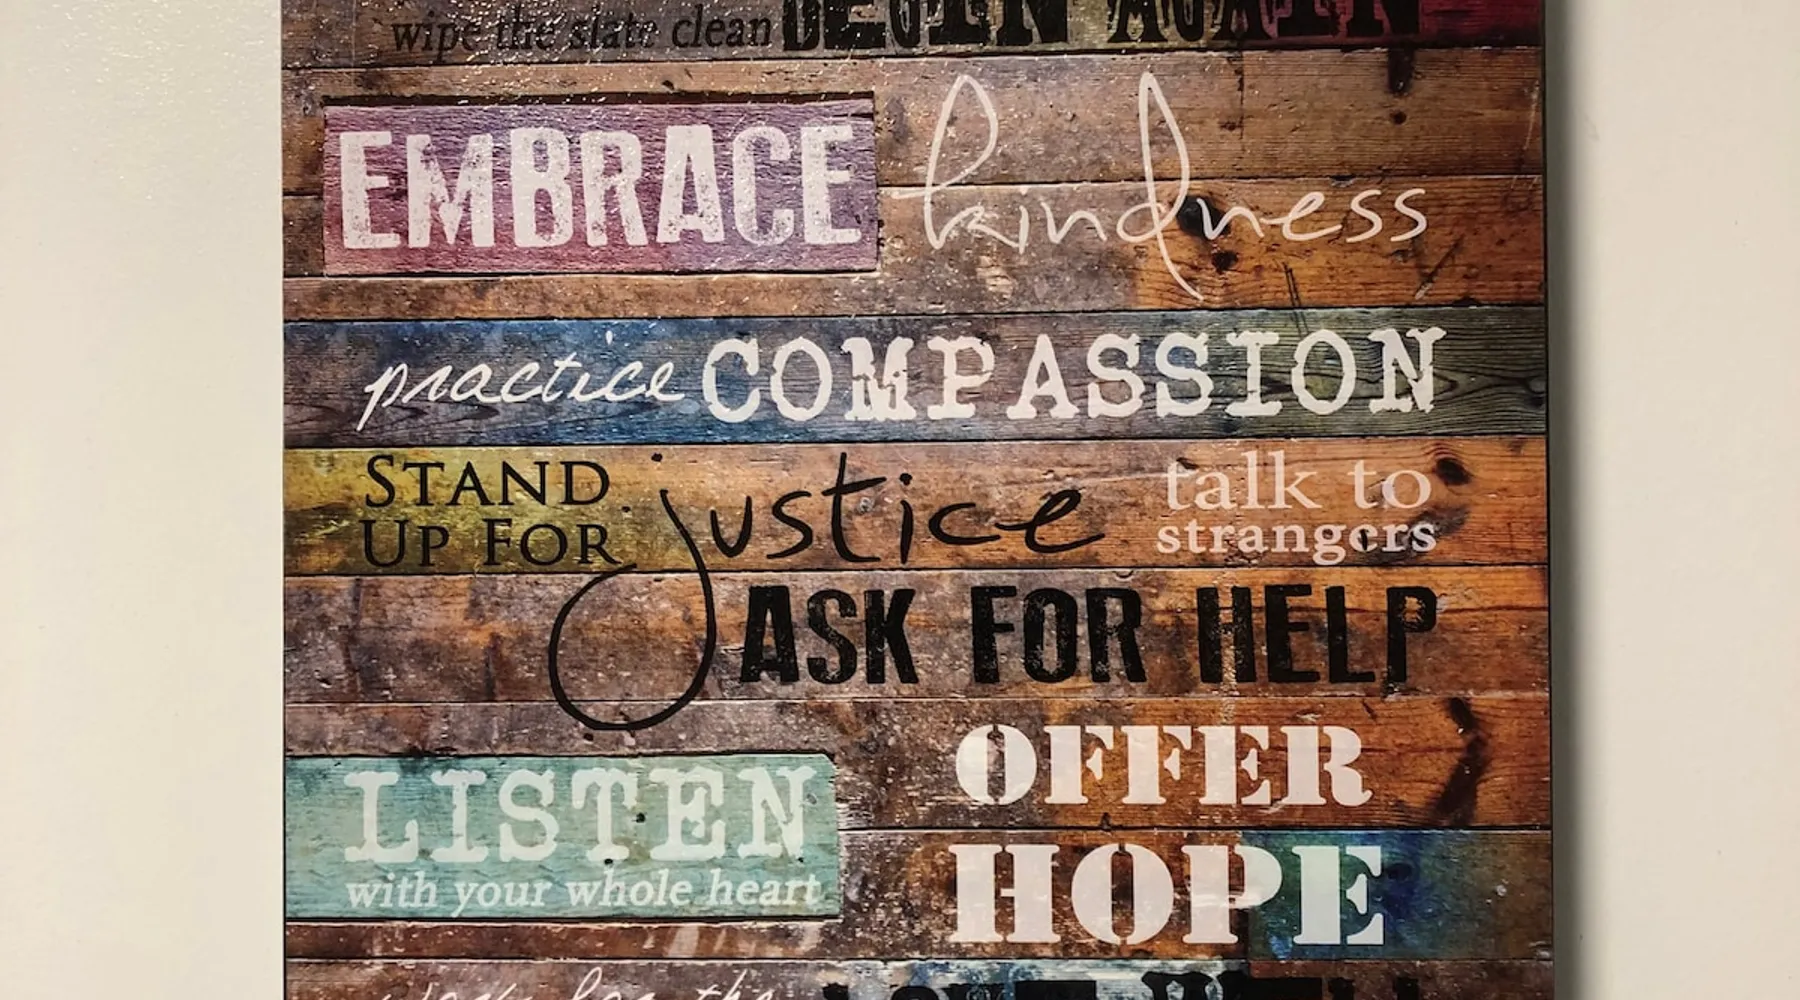 wipe the slate clean BEGIN AGAIN
EMBRACE kindness
practice COMPASSION
STAND UP FOR justice
talk to strangers
ASK FOR HELP
LISTEN
with your whole heart
OFFER
HOPE